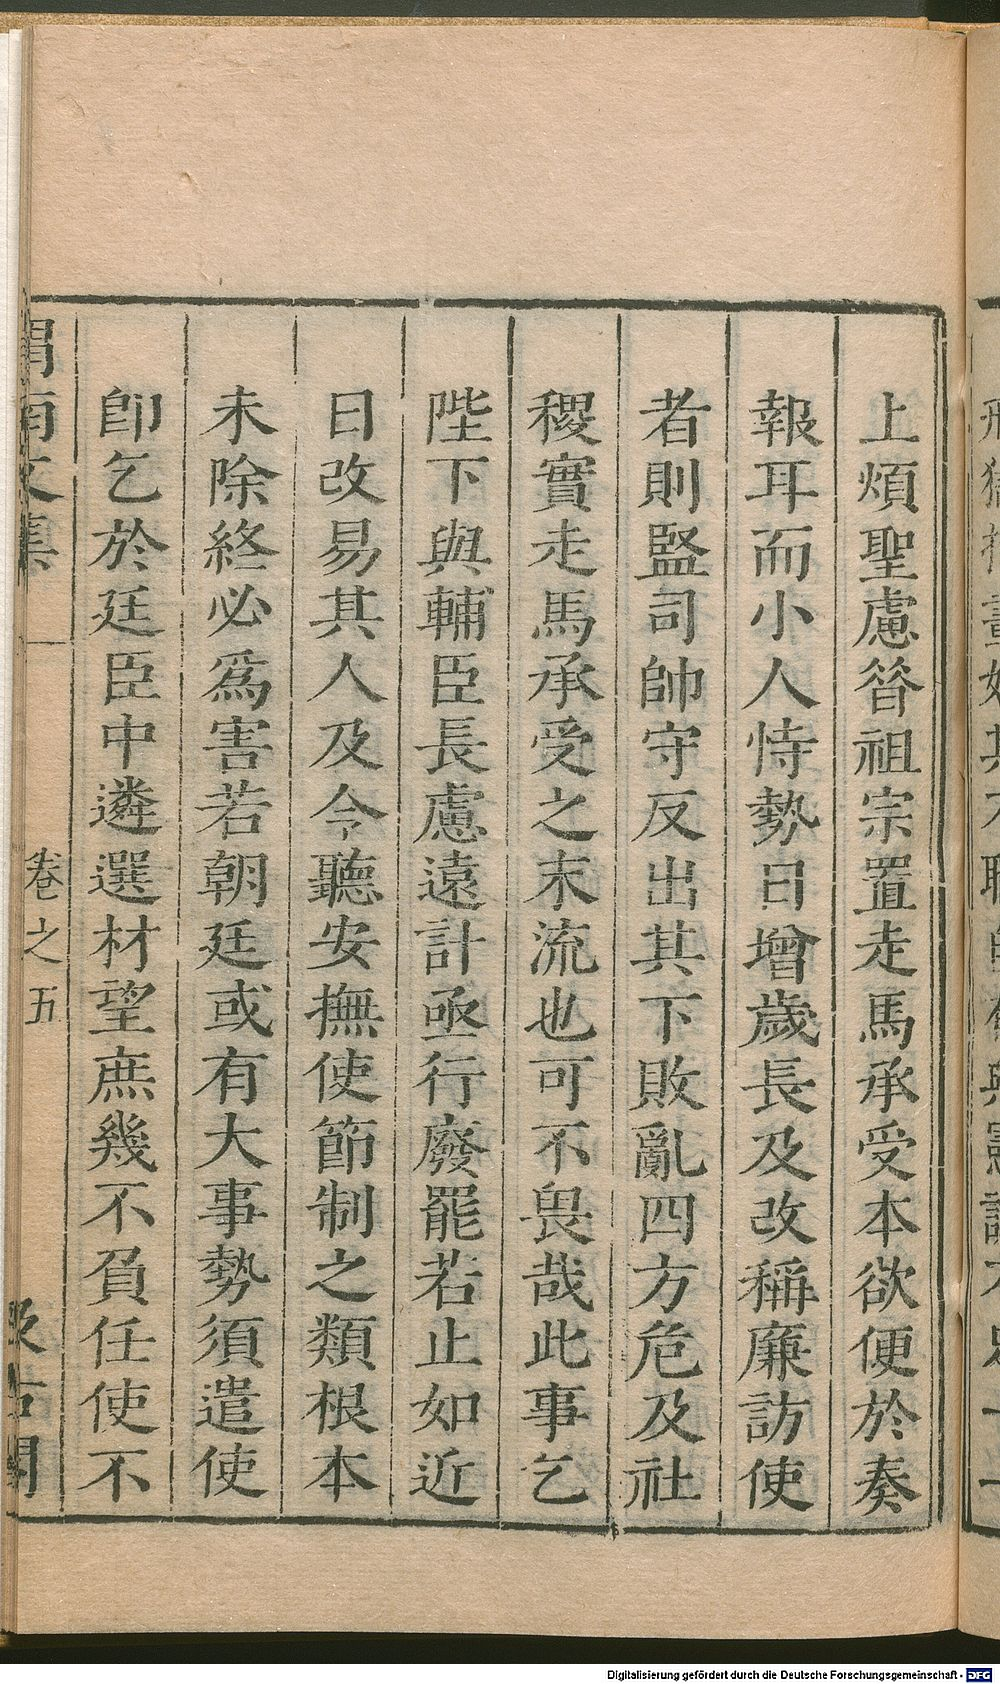 上煩聖慮昝祖宗置走馬承受本欲便於奏
報耳而小人恃勢日增歲長及改稱廉訪使
者則監司帥守反出其下敗亂四方危及社
稷實走馬承受之末流也可不畏哉此事乞
陛下與輔臣長慮遠計亟行廢罷若止如近
日改易其人及令聽安撫使節制之類根本
未除終必爲害若朝廷或有大事勢須遣使
卽乞於廷臣中遴選材望庶幾不負任使不
渭南文集 卷之五 汲古閣
Digitalisierung gefördert durch die Deutsche Forschungsgemeinschaft - DFG